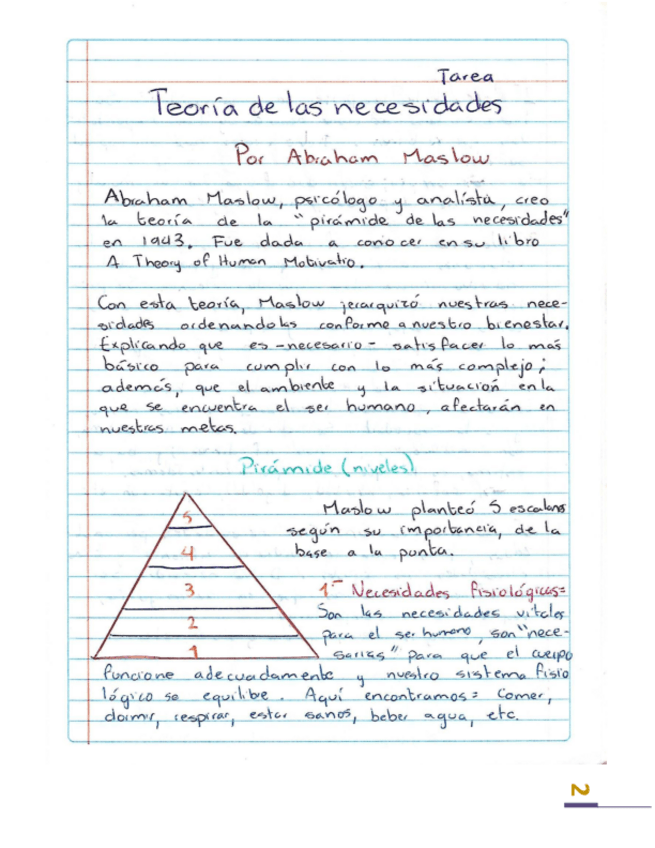 Tarea
Teoría de las necesidades
Por Abraham Maslow
Abraham Maslow, psicólogo y analista, creo
la teoría de la "pirámide de las necesidades"
en 1943. Fue dada a conocer en su libro
A Theory of Human Motivatio.
Con esta teoría, Maslow jerarquizó nuestras nece-
sidades ordenandolas conforme a nuestro bienestar.
Explicando que es -necesario- satisfacer lo más
básico para cumplir con lo más complejo;
además, que el ambiente y la situación en la
que se encuentra el ser humano, afectarán en
nuestras metas.
Pirámide (niveles)
5
4
3
2
1
Maslow planteó 5 escalones
según su importancia, de la
base a la punta.
1- Necesidades fisiológicas=
Son las necesidades vitales
para el ser humano, son "nece-
sarias" para que el cuerpo
funcione adecuadamente y nuestro sistema fisio
lógico se equilibre. Aquí encontramos= Comer,
dormir, respirar, estar sanos, beber agua, etc.
2